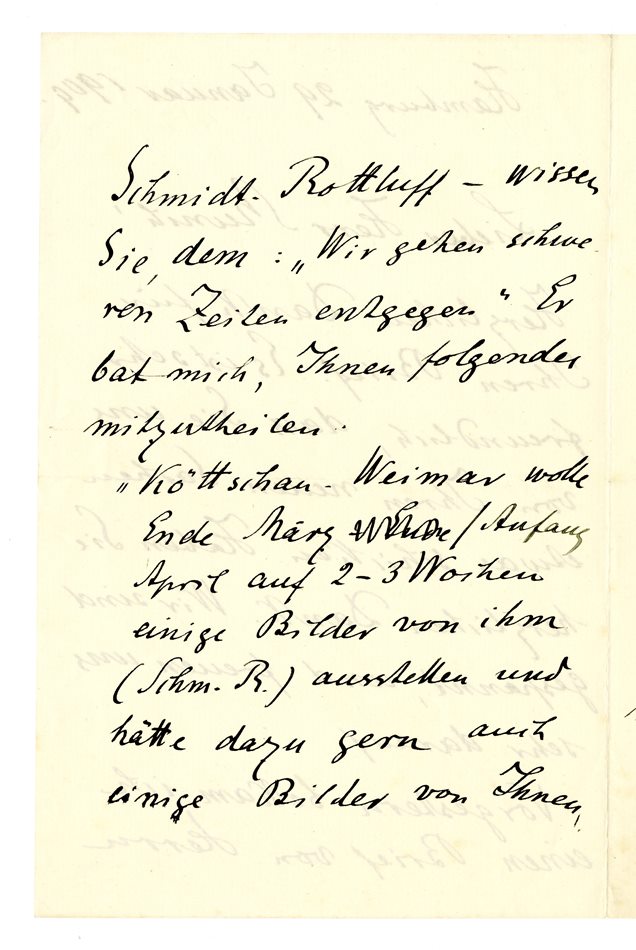 Schmidt-Rottluff – wissen
Sie, dem : „Wir gehen schwe
ren Zeiten entgegen" Er
bat mich, Ihnen folgendes
mitzutheilen.
„Köttschau-Weimar wolle
Ende März /Anfang
April auf 2–3 Wochen
einige Bilder von ihm
(Schm. R.) ausstellen und
hätte dazu gern auch
einige Bilder von Ihnen,